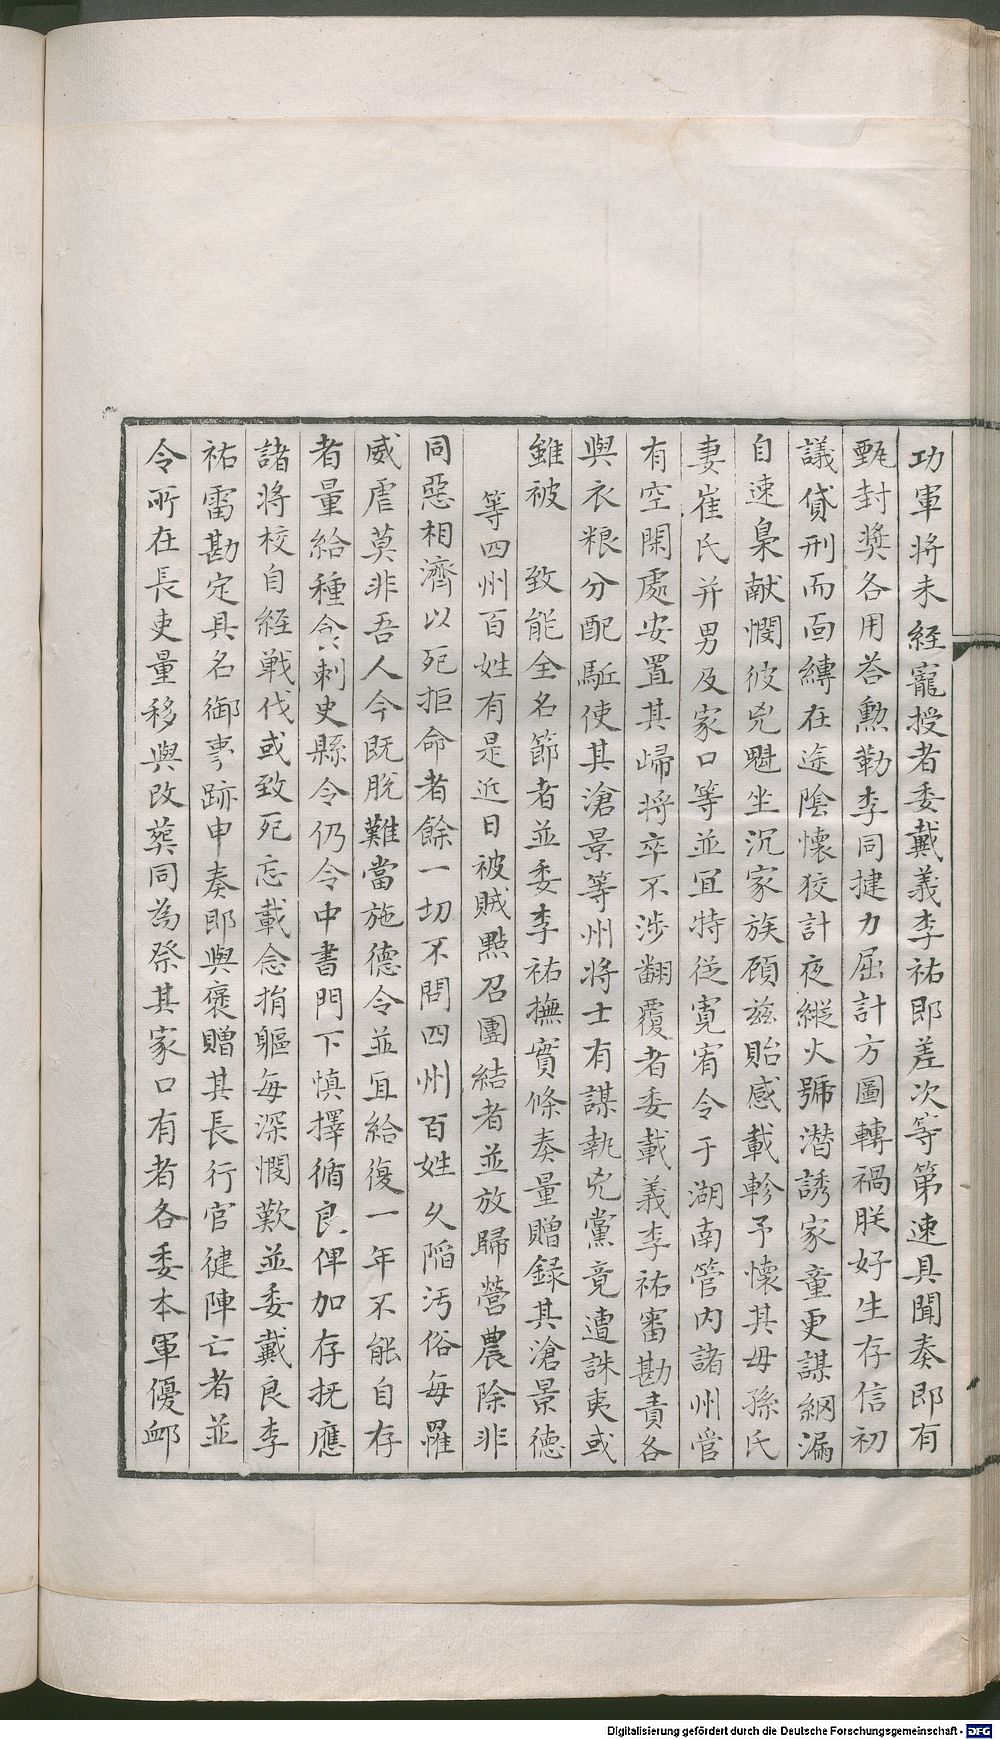 功軍將未經寵授者委戴義李祐即差次等第速具聞奏即有
甄封獎各用荅勲勤李同揵力屈計方圖轉禍朕好生存信初
議貸刑而面縛在途陰懷狡計夜縱火號潜誘家童更謀網漏
自速梟献憫彼兇魁坐沉家族顧兹貽感載軫予懷其母孫氏
妻崔氏并男及家口等並宜特従寛宥令于湖南管内諸州管
有空閑處安置其歸將卒不涉翻覆者委載義李祐審勘責各
與衣粮分配駈使其滄景等州將士有謀執兇黨竟遭誅夷或
雖被　致能全名節者並委李祐撫實條奏量贈録其滄景德
等四州百姓有是近日被賊㸃召團結者並放歸營農除非
同惡相濟以死拒命者餘一切不問四州百姓乆陥汚俗毎罹
威虐莫非吾人今既脫難當施德令並宜給復一年不能自存
者量給種令刺史縣令仍令中書門下慎擇循良俾加存抚應
諸將校自経戰伐或致死忘載念捐軀毎深憫歎並委戴良李
祐雷勘定具名御事跡申奏即與褒贈其長行官健陣亡者並
令所在長吏量移與改葬同為祭其家口有者各委本軍優䘏
Digitalisierung gefördert durch die Deutsche Forschungsgemeinschaft - DFG